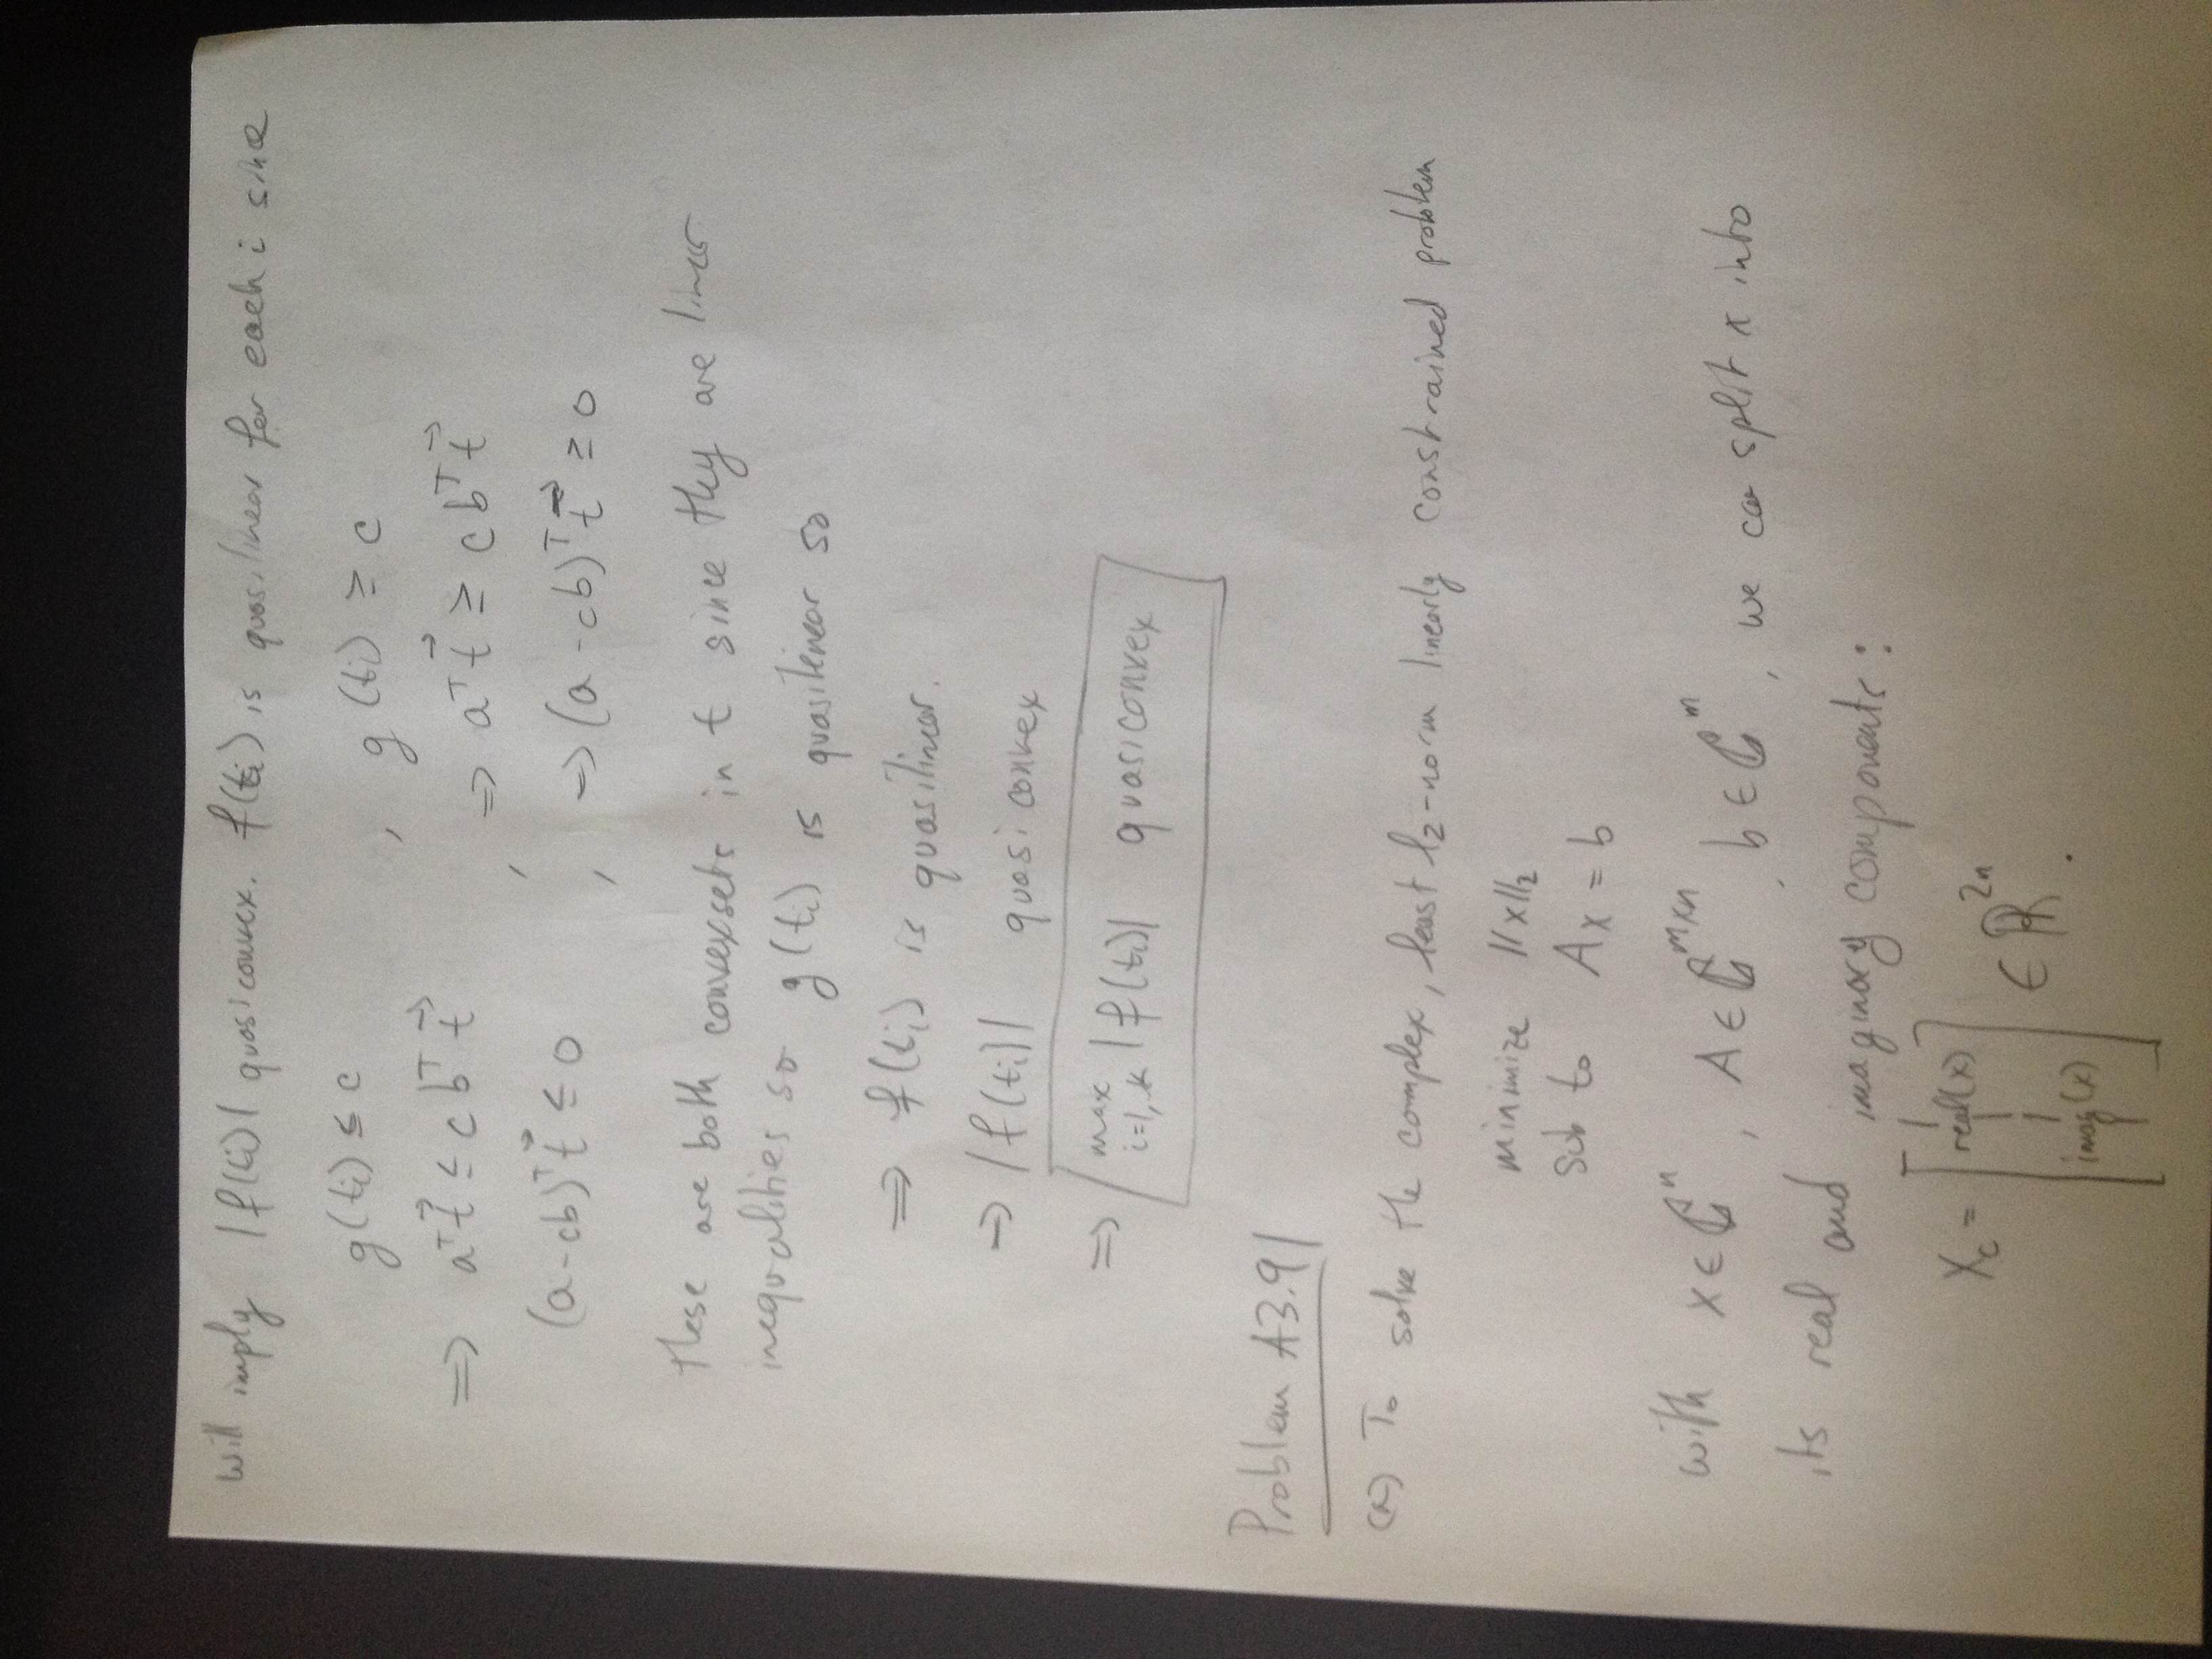 will imply |f(tᵢ)| quasiconvex. f(tᵢ) is quasilinear for each i since
g(tᵢ) ≤ c , g(tᵢ) ≥ c
⇒ aᵀt⃗ ≤ c bᵀt⃗ , ⇒ aᵀt⃗ ≥ c bᵀt⃗
(a-cb)ᵀt⃗ ≤ 0 , ⇒ (a-cb)ᵀt⃗ ≥ 0
These are both convex sets in t since they are linear
inequalities so g(tᵢ) is quasilinear so
⇒ f(tᵢ) is quasilinear.
⇒ |f(tᵢ)| quasiconvex
⇒ max |f(tᵢ)| quasiconvex
i=1,..k
Problem A3.9|
(a) To solve the complex, least l₂-norm linearly constrained problem
minimize ||x||₂
sub to Ax = b
with x ∈ ℂⁿ, A ∈ ℂᵐˣⁿ, b ∈ ℂᵐ, we can split x into
its real and imaginary components:
X_c = [ real(x)
imag(x) ] ∈ ℝ²ⁿ.